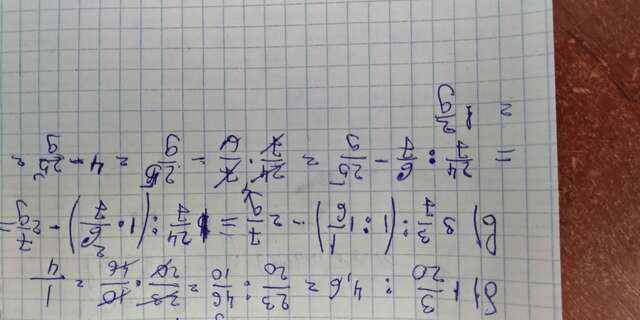 б) 1 3/20 : 4,6 = 23/20 : 46/10 = 23/20 · 10/46 = 1/4
в) 3 3/7 : (1 : 1 1/6) - 2 7/9 = 24/7 : (1 : 7/6) - 2 7/9 =
= 24/7 : 6/7 - 25/9 = 24/7 · 7/6 - 25/9 = 4 - 25/9 =
= 1 2/9